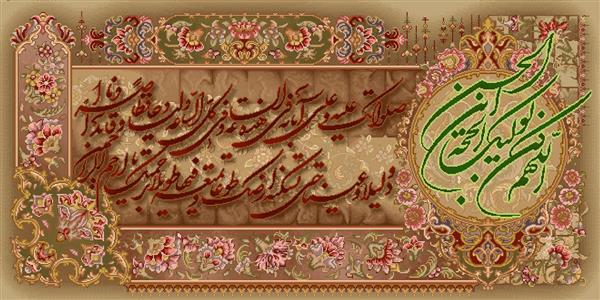 اللهم كن لوليك الحجة ابن الحسن
صلواتك عليه و على آبائه في هذه الساعة و في كل الساعة وليا و حافظا و قائدا و ناصرا
و دليلا و عينا حتى تسكنه ارضك طوعا و تمتعه فيها طويلا برحمتك يا ارحم الراحمين